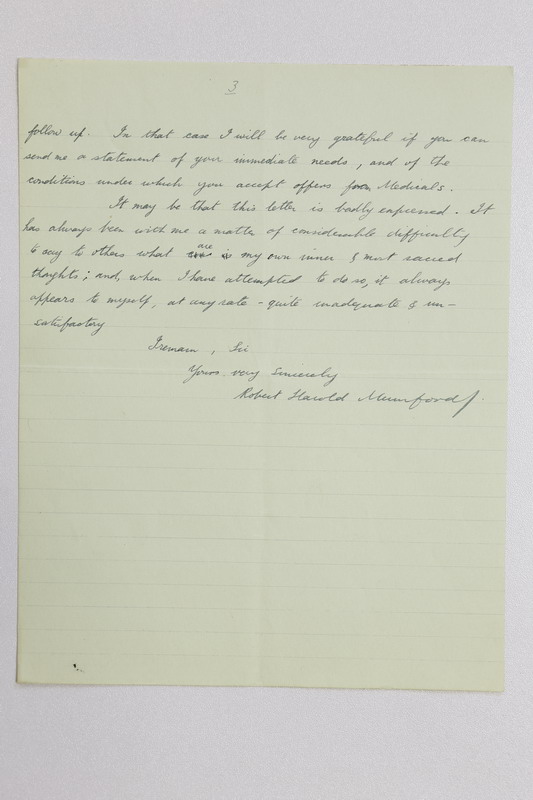 3
follow up. In that case I will be very grateful if you can
send me a statement of your immediate needs, and of the
conditions under which you accept offers from Medicals.
It may be that this letter is badly expressed. It
has always been with me a matter of considerable difficulty
to say to others what are my own inner & most sacred
thoughts; and, when I have attempted to do so, it always
appears to myself, at any rate - quite inadequate & un-
satisfactory
I remain, Sir
Yours very sincerely
Robert Harold Mumford.